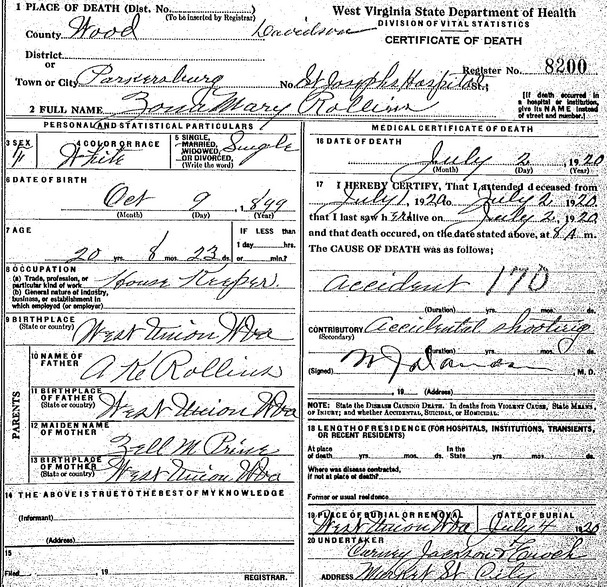 1 PLACE OF DEATH (Dist. No.
(To be inserted by Registrar)
County Wood Davidson
District
or
Town or City Parkersburg No. St Josephs Hospital St;
2 FULL NAME Mary Rollins
West Virginia State Department of Health
DIVISION OF VITAL STATISTICS
CERTIFICATE OF DEATH
Register No. 8200
[If death occurred in
a hospital or institution,
give its NAME instead
of street and number.]
PERSONAL AND STATISTICAL PARTICULARS
3 SEX F
4 COLOR OR RACE White
5 SINGLE,
MARRIED,
WIDOWED,
OR DIVORCED,
(Write the word) Single
6 DATE OF BIRTH
Oct 9, 1899
(Month) (Day) (Year)
7 AGE
20 yrs. 8 mos. 23 ds.
IF LESS than
1 day hrs.
or min.?
8 OCCUPATION
(a) Trade, profession, or
particular kind of work House Keeper.
(b) General nature of industry,
business, or establishment in
which employed (or employer)
9 BIRTHPLACE
(State or country) West Union Wva
PARENTS
10 NAME OF
FATHER Rollins
11 BIRTHPLACE
OF FATHER
(State or country) West Union Wva
12 MAIDEN NAME
OF MOTHER Zell M
13 BIRTHPLACE
OF MOTHER
(State or country) West Union Wva
14 THE ABOVE IS TRUE TO THE BEST OF MY KNOWLEDGE
(Informant)
(Address)
15
Filed , 19
REGISTRAR.
MEDICAL CERTIFICATE OF DEATH
16 DATE OF DEATH
July 2, 1920
(Month) (Day) (Year)
17 I HEREBY CERTIFY, That I attended deceased from
July 1, 1920 to July 2, 1920
that I last saw h er alive on July 2, 1920
and that death occured, on the date stated above, at 8 A m.
The CAUSE OF DEATH was as follows;
accident 170
(Duration) yrs. mos. ds.
CONTRIBUTORY Accidental shooting
(Secondary)
(Duration) yrs. mos. ds.
(Signed) , M. D.
, 19 (Address)
NOTE: State the DISEASE CAUSING DEATH. In deaths from VIOLENT CAUSE, State MEANS,
or INJURY; and whether ACCIDENTAL, SUICIDAL, or HOMICIDAL.
18 LENGTH OF RESIDENCE (FOR HOSPITALS, INSTITUTIONS, TRANSIENTS,
OR RECENT RESIDENTS)
At place In the
of death yrs. mos. ds. State yrs. mos. ds.
Where was disease contracted,
if not at place of death?
Former or usual residence
19 PLACE OF BURIAL OR REMOVAL DATE OF BURIAL
West Union Wva July 4 1920
20 UNDERTAKER
Jackson & Enoch
ADDRESS Market St City